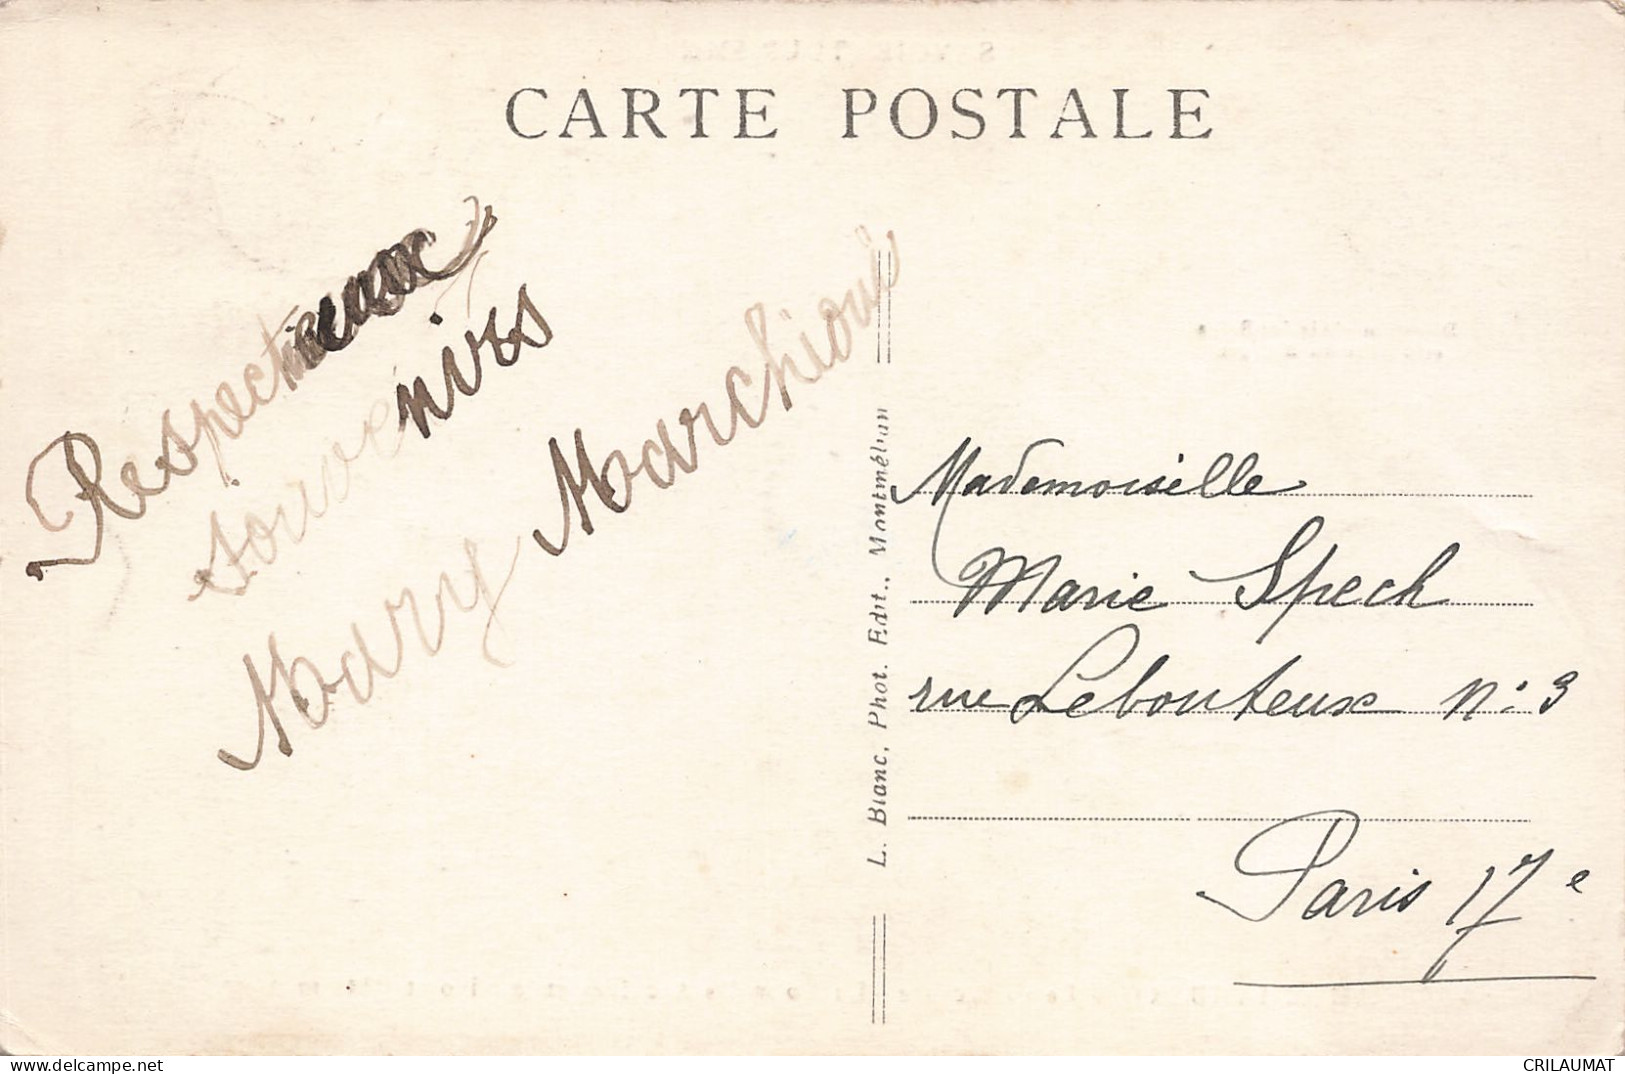 CARTE POSTALE
Respectueux
souvenirs
Mary Marchioni
L. Blanc, Phot. Edit., Montmélian
Mademoiselle
Marie Spech
rue Lebouteux n: 3
Paris 17e
www.delcampe.net
CRILAUMAT